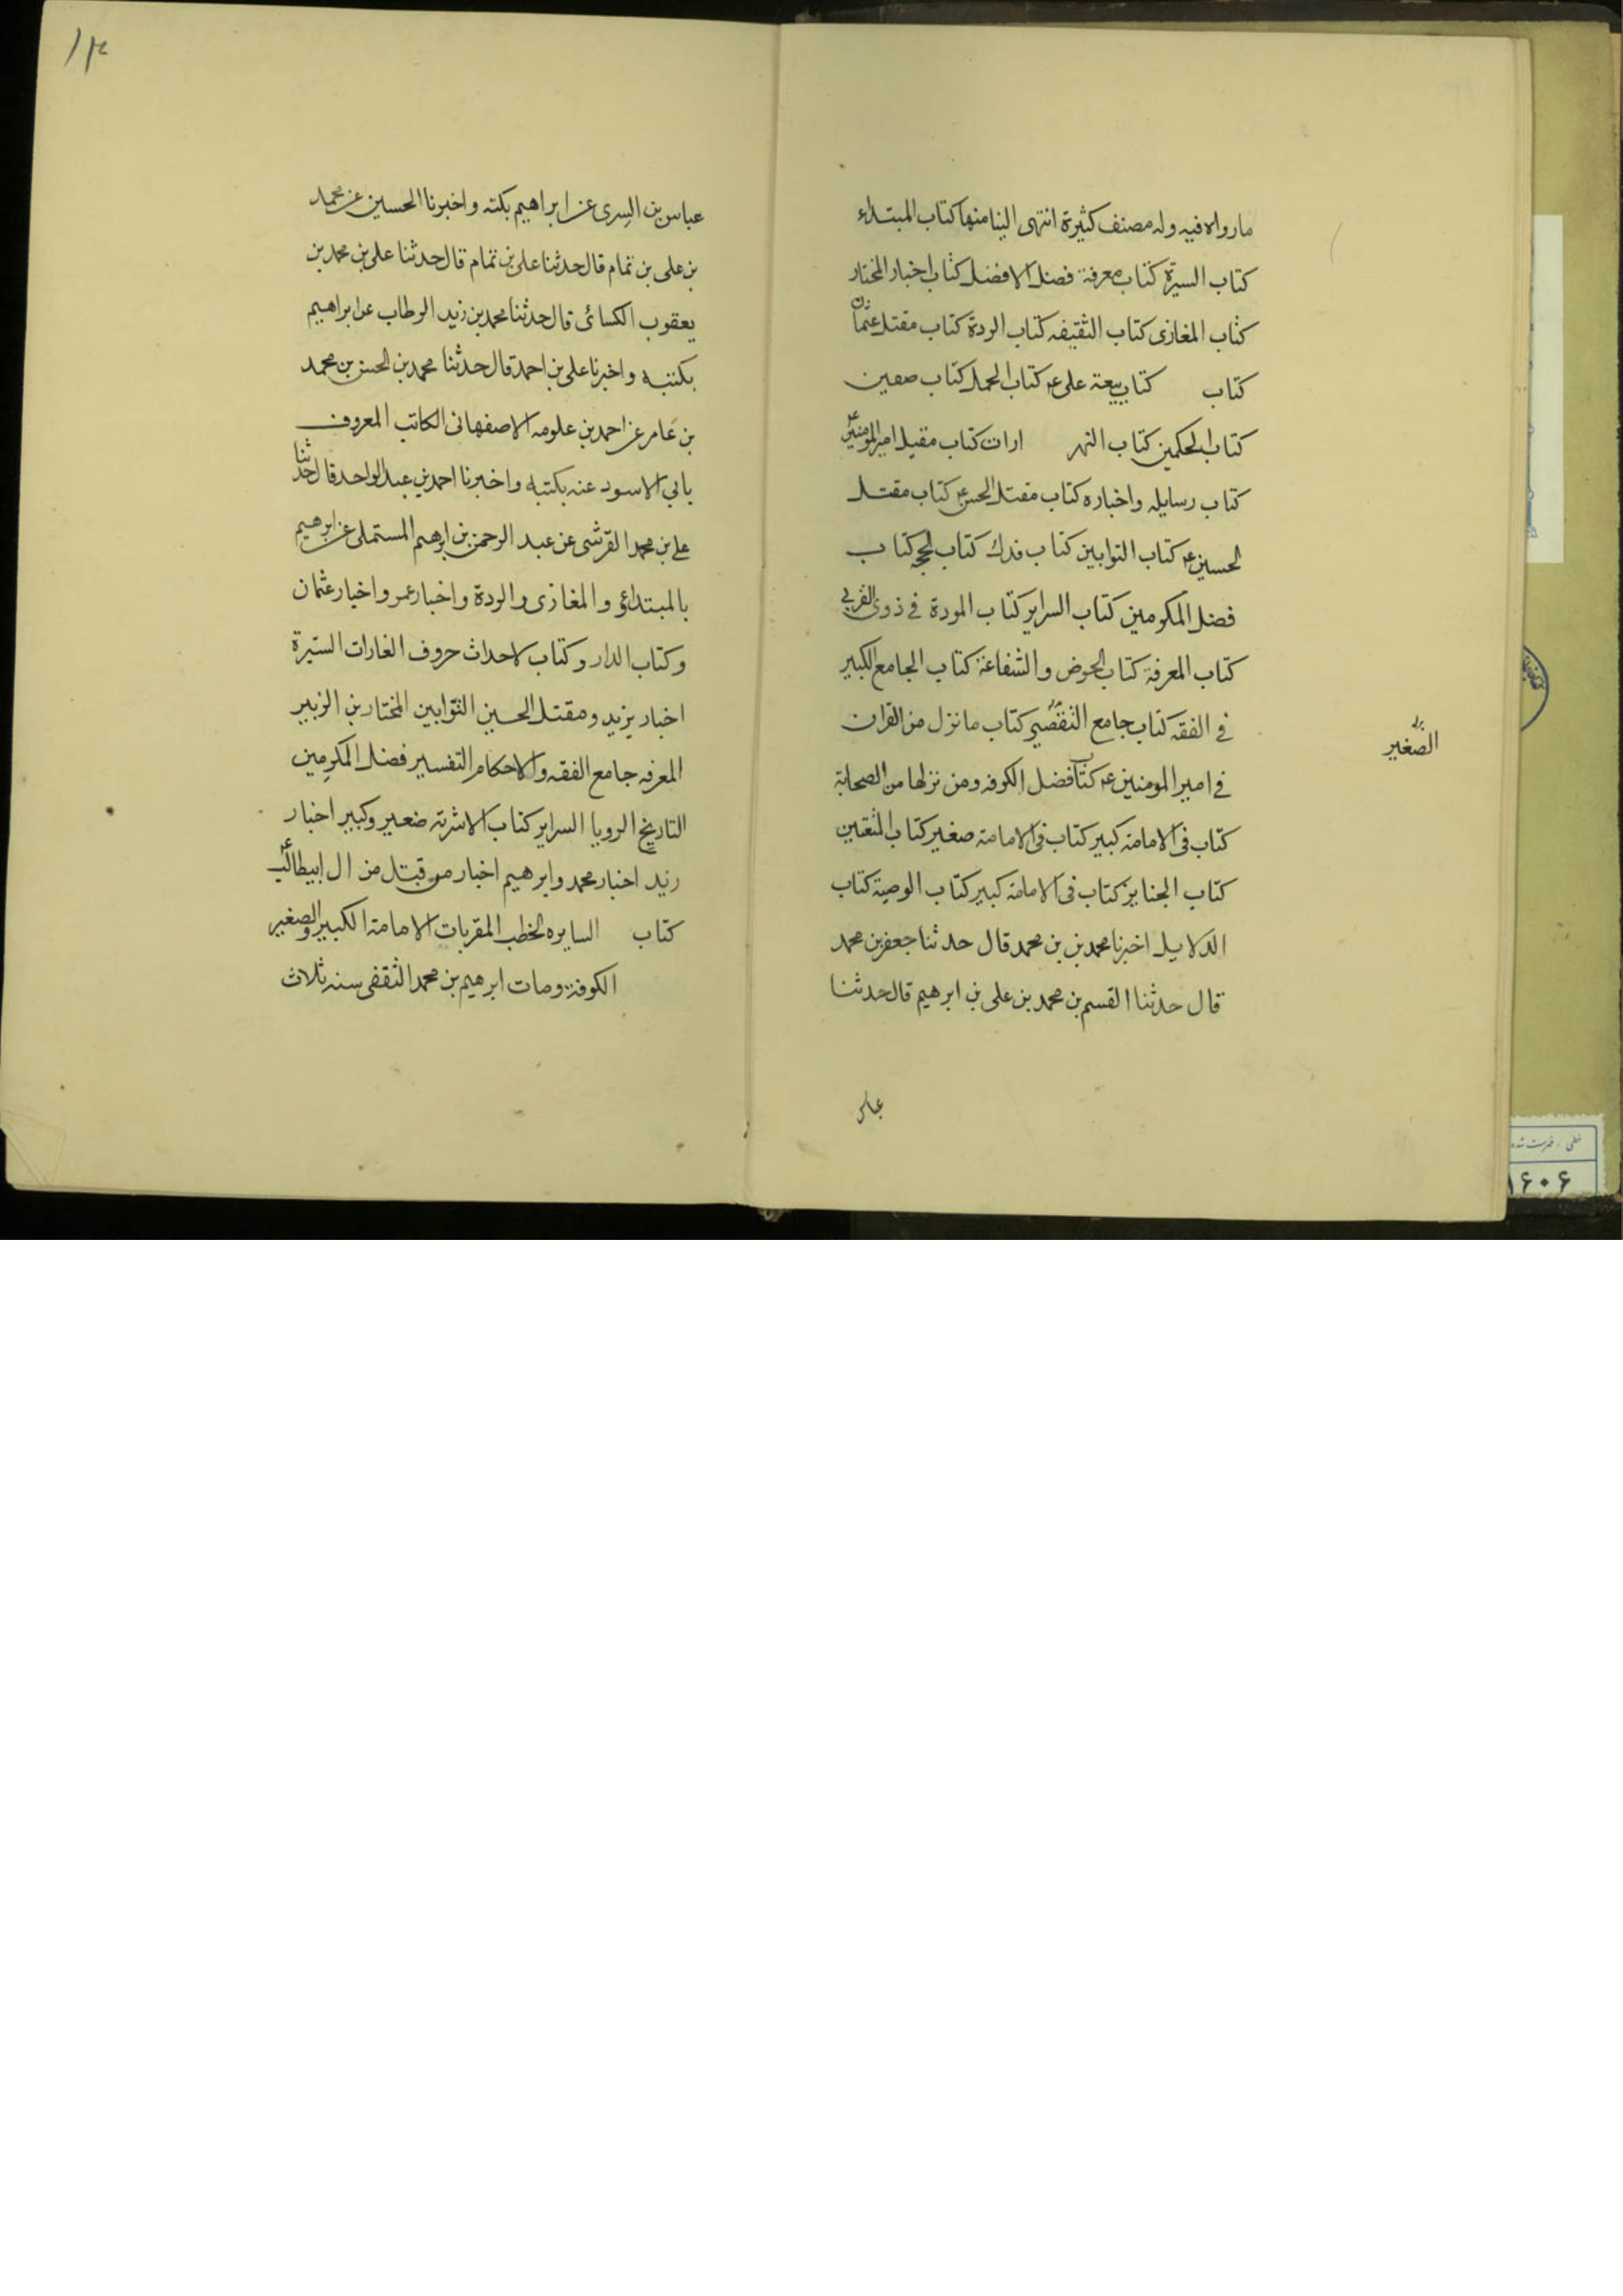 ما رواه فيه وله مصنف كثيرة انتهى الينا منها كتاب المبتداء
كتاب السيرة كتاب معرفة فضل الافضل كتاب اخبار المختار
كتاب المغازى كتاب الثقيفه كتاب الردة كتاب مقتل عثمان
كتاب كتاب بيعة على ع كتاب الجمل كتاب صفين
كتاب الحكمين كتاب النهر اران كتاب مقيل امير المومنين ع
كتاب رسايله واخباره كتاب مقتل الحسن ع كتاب مقتل
الحسين ع كتاب التوابين كتاب فدك كتاب الحجه كتاب
فضل المكومين كتاب السراير كتاب المودة فى ذوى القربى
كتاب المعرفة كتاب الحوض والشفاعة كتاب الجامع الكبير
فى الفقه كتاب جامع كتاب ما نزل من القران
الصغير
فى امير المومنين ع كتاب فضل الكوفه ومن نزلها من الصحابة
كتاب فى الامامة كبير كتاب فى الامامة صغير كتاب المتعتين
كتاب الجنايز كتاب فى الامامة كبير كتاب الوصية كتاب
الدلايل اخبرنا محمد بن بن محمد قال حدثنا جعفر بن محمد
قال حدثنا القسم بن محمد بن على بن ابرهيم قال حدثنا
عباس
١٣
عباس بن السرى عن ابراهيم بكته واخبرنا الحسين عن محمد
بن على بن تمام قال حدثنا على بن تمام قال حدثنا على بن محمد بن
يعقوب الكسائى قال حدثنا محمد بن زيد الرطاب عن ابراهيم
بكتبه واخبرنا على بن احمد قال حدثنا محمد بن الحسن بن محمد
بن عامر عن احمد بن علومه الاصفهانى الكاتب المعروف
بابى الاسود عنه بكتبه واخبرنا احمد بن عبد الواحد قال حدثنا
على بن محمد القرشى عن عبد الرحمن بن ابرهيم المستملى عن ابرهيم
بالمبتداء والمغازى والردة واخبار عمر واخبار عثمان
وكتاب الدار وكتاب الاحداث حروف الغارات السيرة
اخبار يزيد ومقتل الحسين التوابين المختار بن الزبير
المعرفه جامع الفقه والاحكام التفسير فضل المكرمين
التاريخ الرويا السراير كتاب الاشربة صغير وكبير اخبار
زيد اخبار محمد وابرهيم اخبار من قتل من ال ابيطالب ع
كتاب السايره الخطب المقربات الامامة الكبير والصغير
الكوفة ومات ابرهيم بن محمد الثقفى سنه ثلاث
خطى - فهرست شده
١٤٠٤